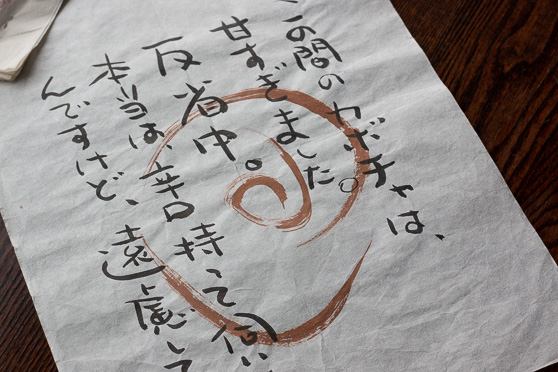 この間のカボチャは、
甘すぎました。
反省中。
本当は、辛口持って伺い
んですけど、遠慮して